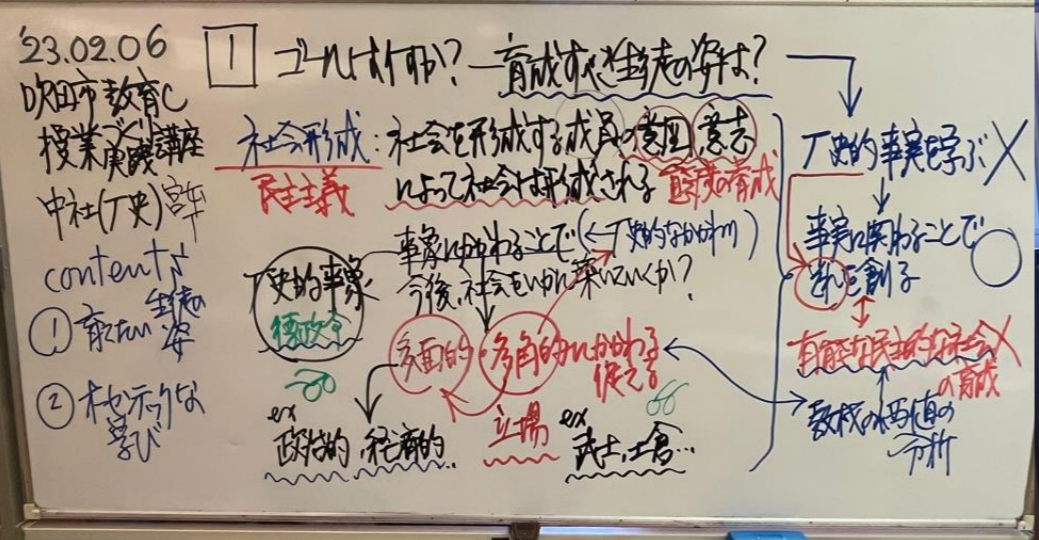 '23.02.06
吹田市教育C
授業づくり実践講座
中社(丆史)
contents
① 育てたい生徒の姿
② オセンティックな学び
1 ゴールは何か? ―育成すべき生徒の姿は?
社会形成:社会を形成する成員の意図、意志
によって社会は形成される
民主主義
態度の育成
丆史的事象
徳政令
事象にかかわることで(←丆史的なかかわり)
今後、社会をいかに築いていくか?
多面的・多角的にかかわる
捉える
ex
政治的、経済的…
立場
ex
武士、土倉…
丆史的事実を学ぶ ×
事実に関わることで
を創る
有能な民主的な社会 ×
の育成
教材の価値の
分析